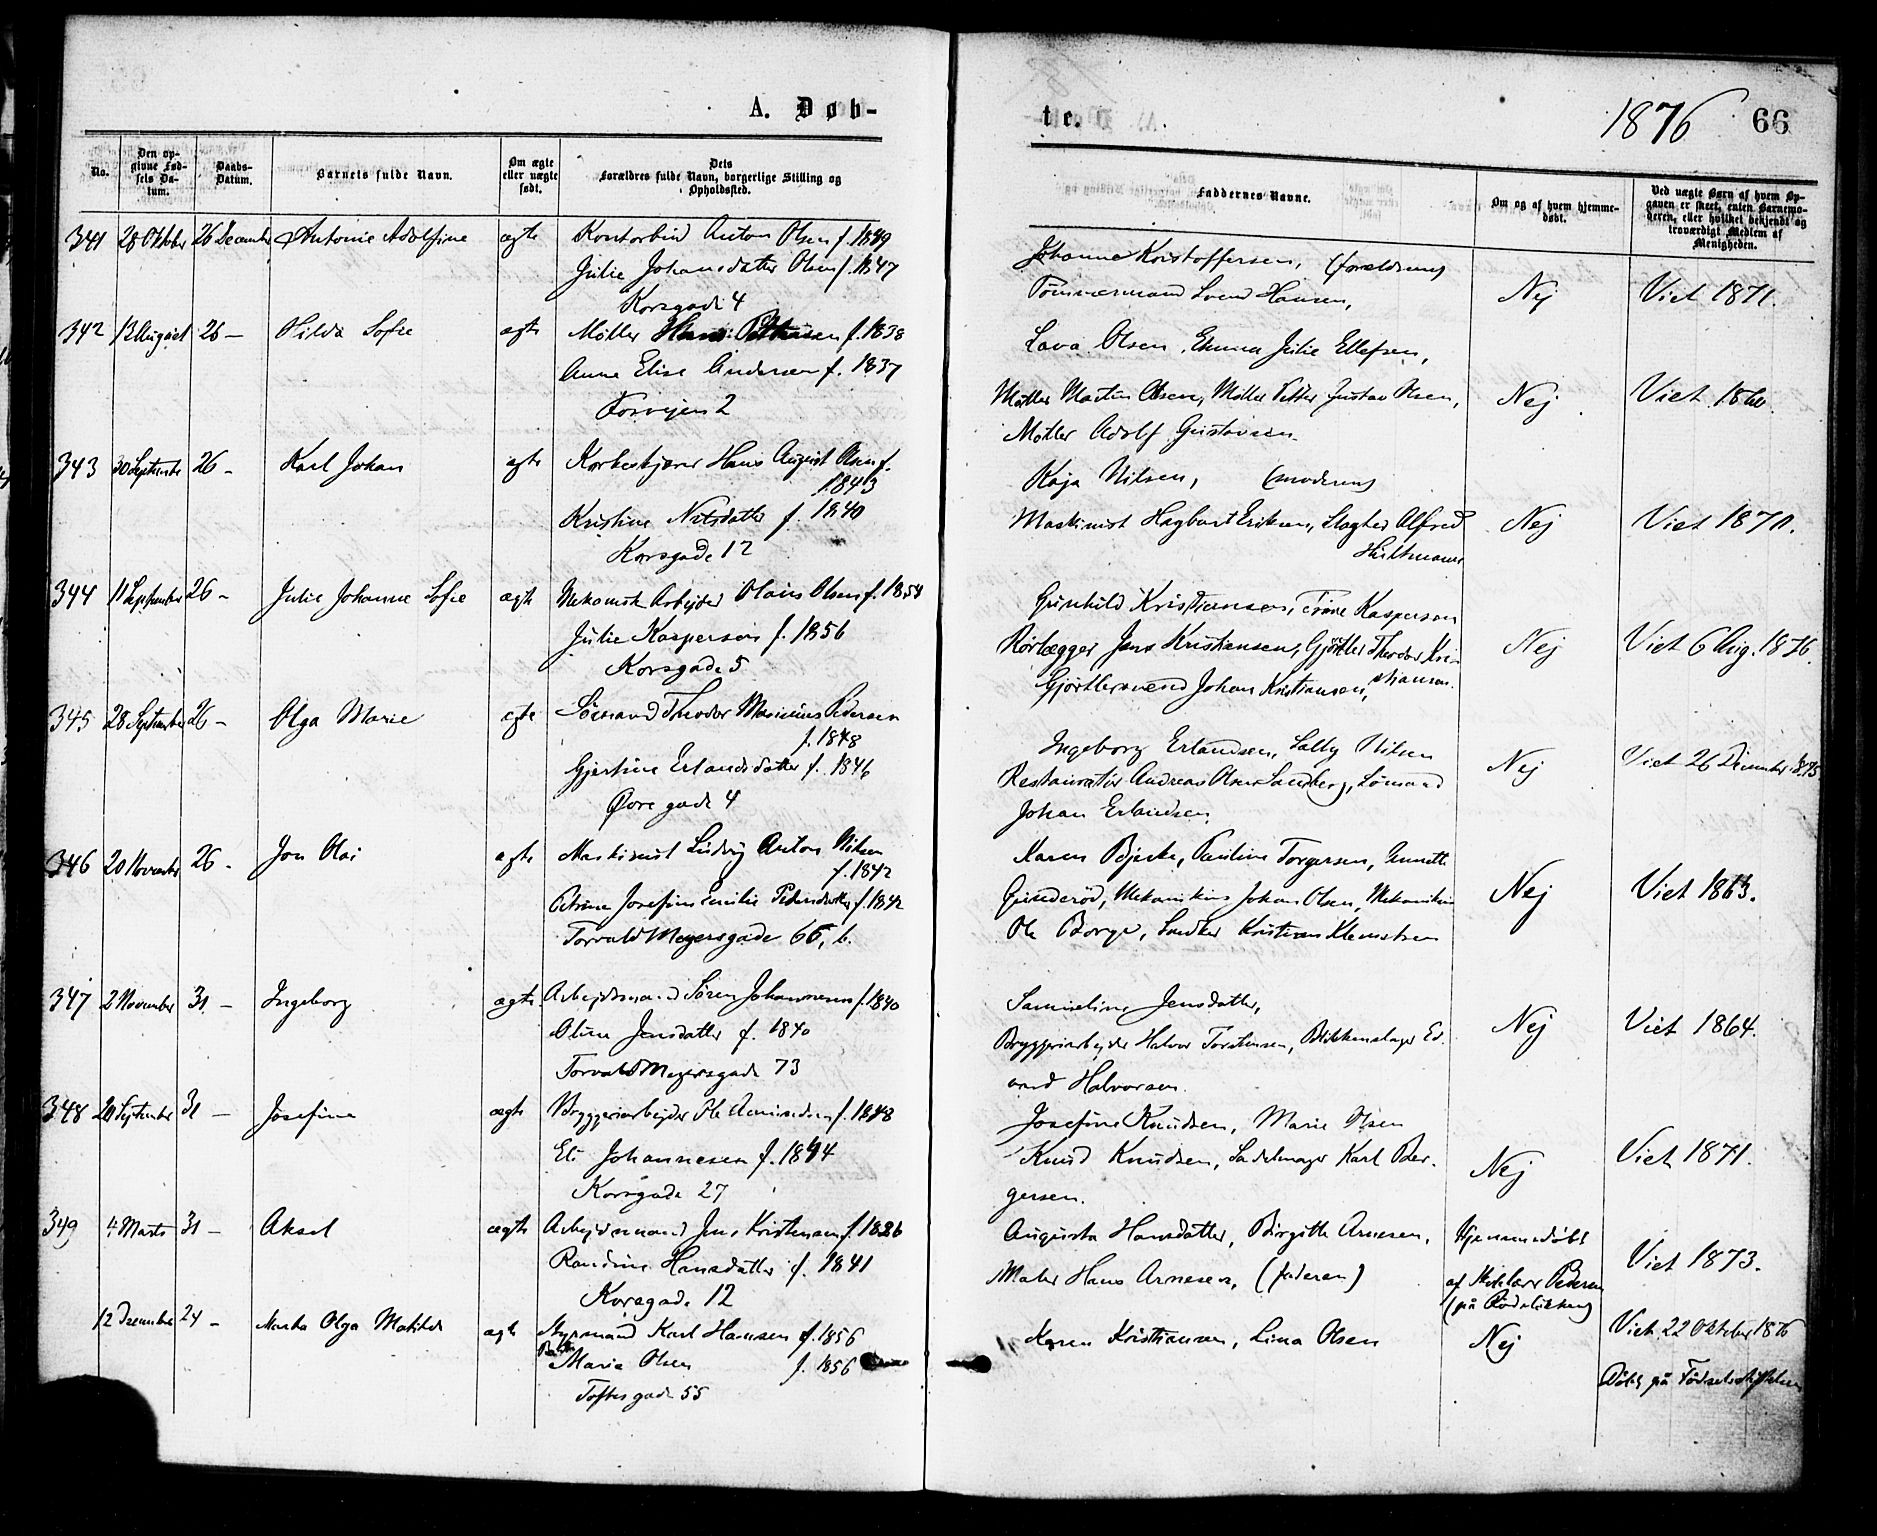 A. Døb-
te.
1876
66
No.
Den op-
givne Fød-
sels Da-
tum.
Daabs-
Datum.
Barnets fulde Navn.
Om ægte
eller uægte
født.
Dets
Forældres fulde Navn, borgerlige Stilling og
Opholdssted.
Faddernes Navne.
Om og af hvem hjemme-
døbt.
Ved uægte Børn af hvem Op-
gaven er skeet, enten Barnemo-
deren, eller hvilket bekjendt og
troværdigt Medlem af
Menigheden.
341 28 Oktober 26 December Antonie Adolfine ægte Kontorbud Anton Olsen f. 1849
Julie Johansdatter Olsen f. 1847
Korsgade 4
Johanne Kristoffersen, (forældrene)
Tømmermand Svend Hansen,
Nej
Viet 1871.
342 13 August 26 – Hilda Sofie ægte Møller f. 1838
Anne Elise Andersen f. 1837
Torvejen 2
Lava Olsen, Emma Julie Ellefsen,
Møller Martin Olsen, Møller Petter Gustav Olsen,
Møller Adolf Gustavsen
Nej
Viet 1860.
343 30 September 26 – Karl Johan ægte Korkeskjærer Hans August Olsen f.
1843
Kristine Nilsdatter f. 1840
Korsgade 12
Kaja Nilsen, (moderen)
Maskinist Hagbart Eriksen, Slagter Alfred
Hultmann
Nej
Viet 1870.
344 11 September 26 – Julie Johanne Sofie ægte Mekanisk Arbejder Olaus Olsen f. 1854
Julie Kaspersen f. 1856
Korsgade 5
Gunhild Kristiansen, Trine Kaspersen
Rørlægger Jens Kristiansen, Gjørtler Theodor Kri-
stiansen.
Gjørtlersvend Johan Kristiansen,
Nej
Viet 6 Aug. 1876.
345 28 September 26 – Olga Marie ægte Sømand Theodor Marinius Pedersen
f. 1848
Gjertine Erlandsdatter f. 1846
Øvregade 4
Ingeborg Erlandsen, Sally Nilsen
Restauratør Andreas Olsen Sandberg, Sømand
Johan Erlandsen.
Nej
Viet 26 December 1875
346 20 November 26 – Jon Olai ægte Maskinist Ludvig Anton Nilsen
f. 1842
Petrine Josefine Emilie Pedersdatter f. 1842
Torvald Meyersgade 66, b.
Karen Bjerke, Pauline Torgersen, Annette
Grinderød, Mekanikus Johan Olsen, Mekanikus
Ole Borge, Snedker Kristian Klemetsen
Nej
Viet 1863.
347 2 November 31 – Ingeborg ægte Arbejdsmand Søren Johannesen f. 1840
Oline Jensdatter f. 1840
Torvald Meyersgade 73
Samueline Jensdatter,
Bryggeriarbejder Halvor Torstensen, Blikkenslager Ed-
vard Halvorsen.
Nej
Viet 1864.
348 20 September 31 – Josefine ægte Bryggeriarbejder Ole Amundsen f. 1848
Eli Johannesen f. 1844
Korsgade 27
Josefine Knudsen, Marie Olsen
Knud Knudsen, Sadelmager Karl Bør-
gersen.
Nej
Viet 1871.
349 4 Marts 31 – Aksel ægte Arbejdsmand Jens Kristensen f. 1826
Randine Hansdatter f. 1841
Korsgade 12
Augusta Hansdatter, Birgitte Arnesen,
Maler Hans Arnesen, (faderen)
Hjemmedøbt
af Skolelærer Pedersen
(på Rodeløkken)
Viet 1873.
12 December 24 – Martha Olga Matilde ægte Styrmand Karl Hansen f. 1856
Marie Olsen f. 1856
Toftesgade 55
Karen Kristiansen, Lina Olsen
Nej
Viet 22 Oktober 1876
Døbt på Fødselsstiftelsen